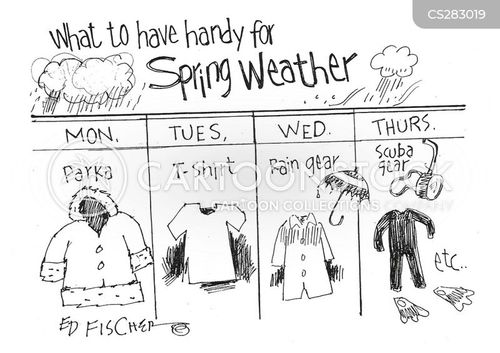 CS283019
What to have handy for
Spring Weather
MON. TUES, WED. THURS.
Parka
T-Shirt
Rain gear
Scuba
gear
CARTOONSTOCK
CARTOON COLLECTIONS COMPANY
etc..
ED FISCHER